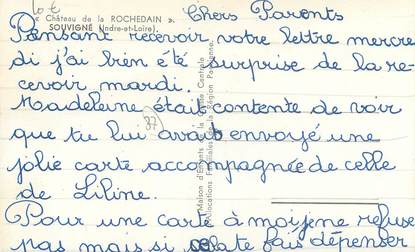 lot
« Château de la ROCHEDAIN ».
SOUVIGNÉ (Indre-et-Loire).
Chers Parents
Pensant recevoir votre lettre mercre
di j'ai bien été surprise de la re-
cevoir mardi.
Madeleine était contente de voir
que tu lui avais envoyé une
jolie carte accompagnée de celle
de Liline.
Pour une carte à moi je ne refuse
pas mais si cela te fais dépenser
Maison d'Enfants de la Caisse Centrale
d'Allocations Familiales de la Région Parisienne.
37